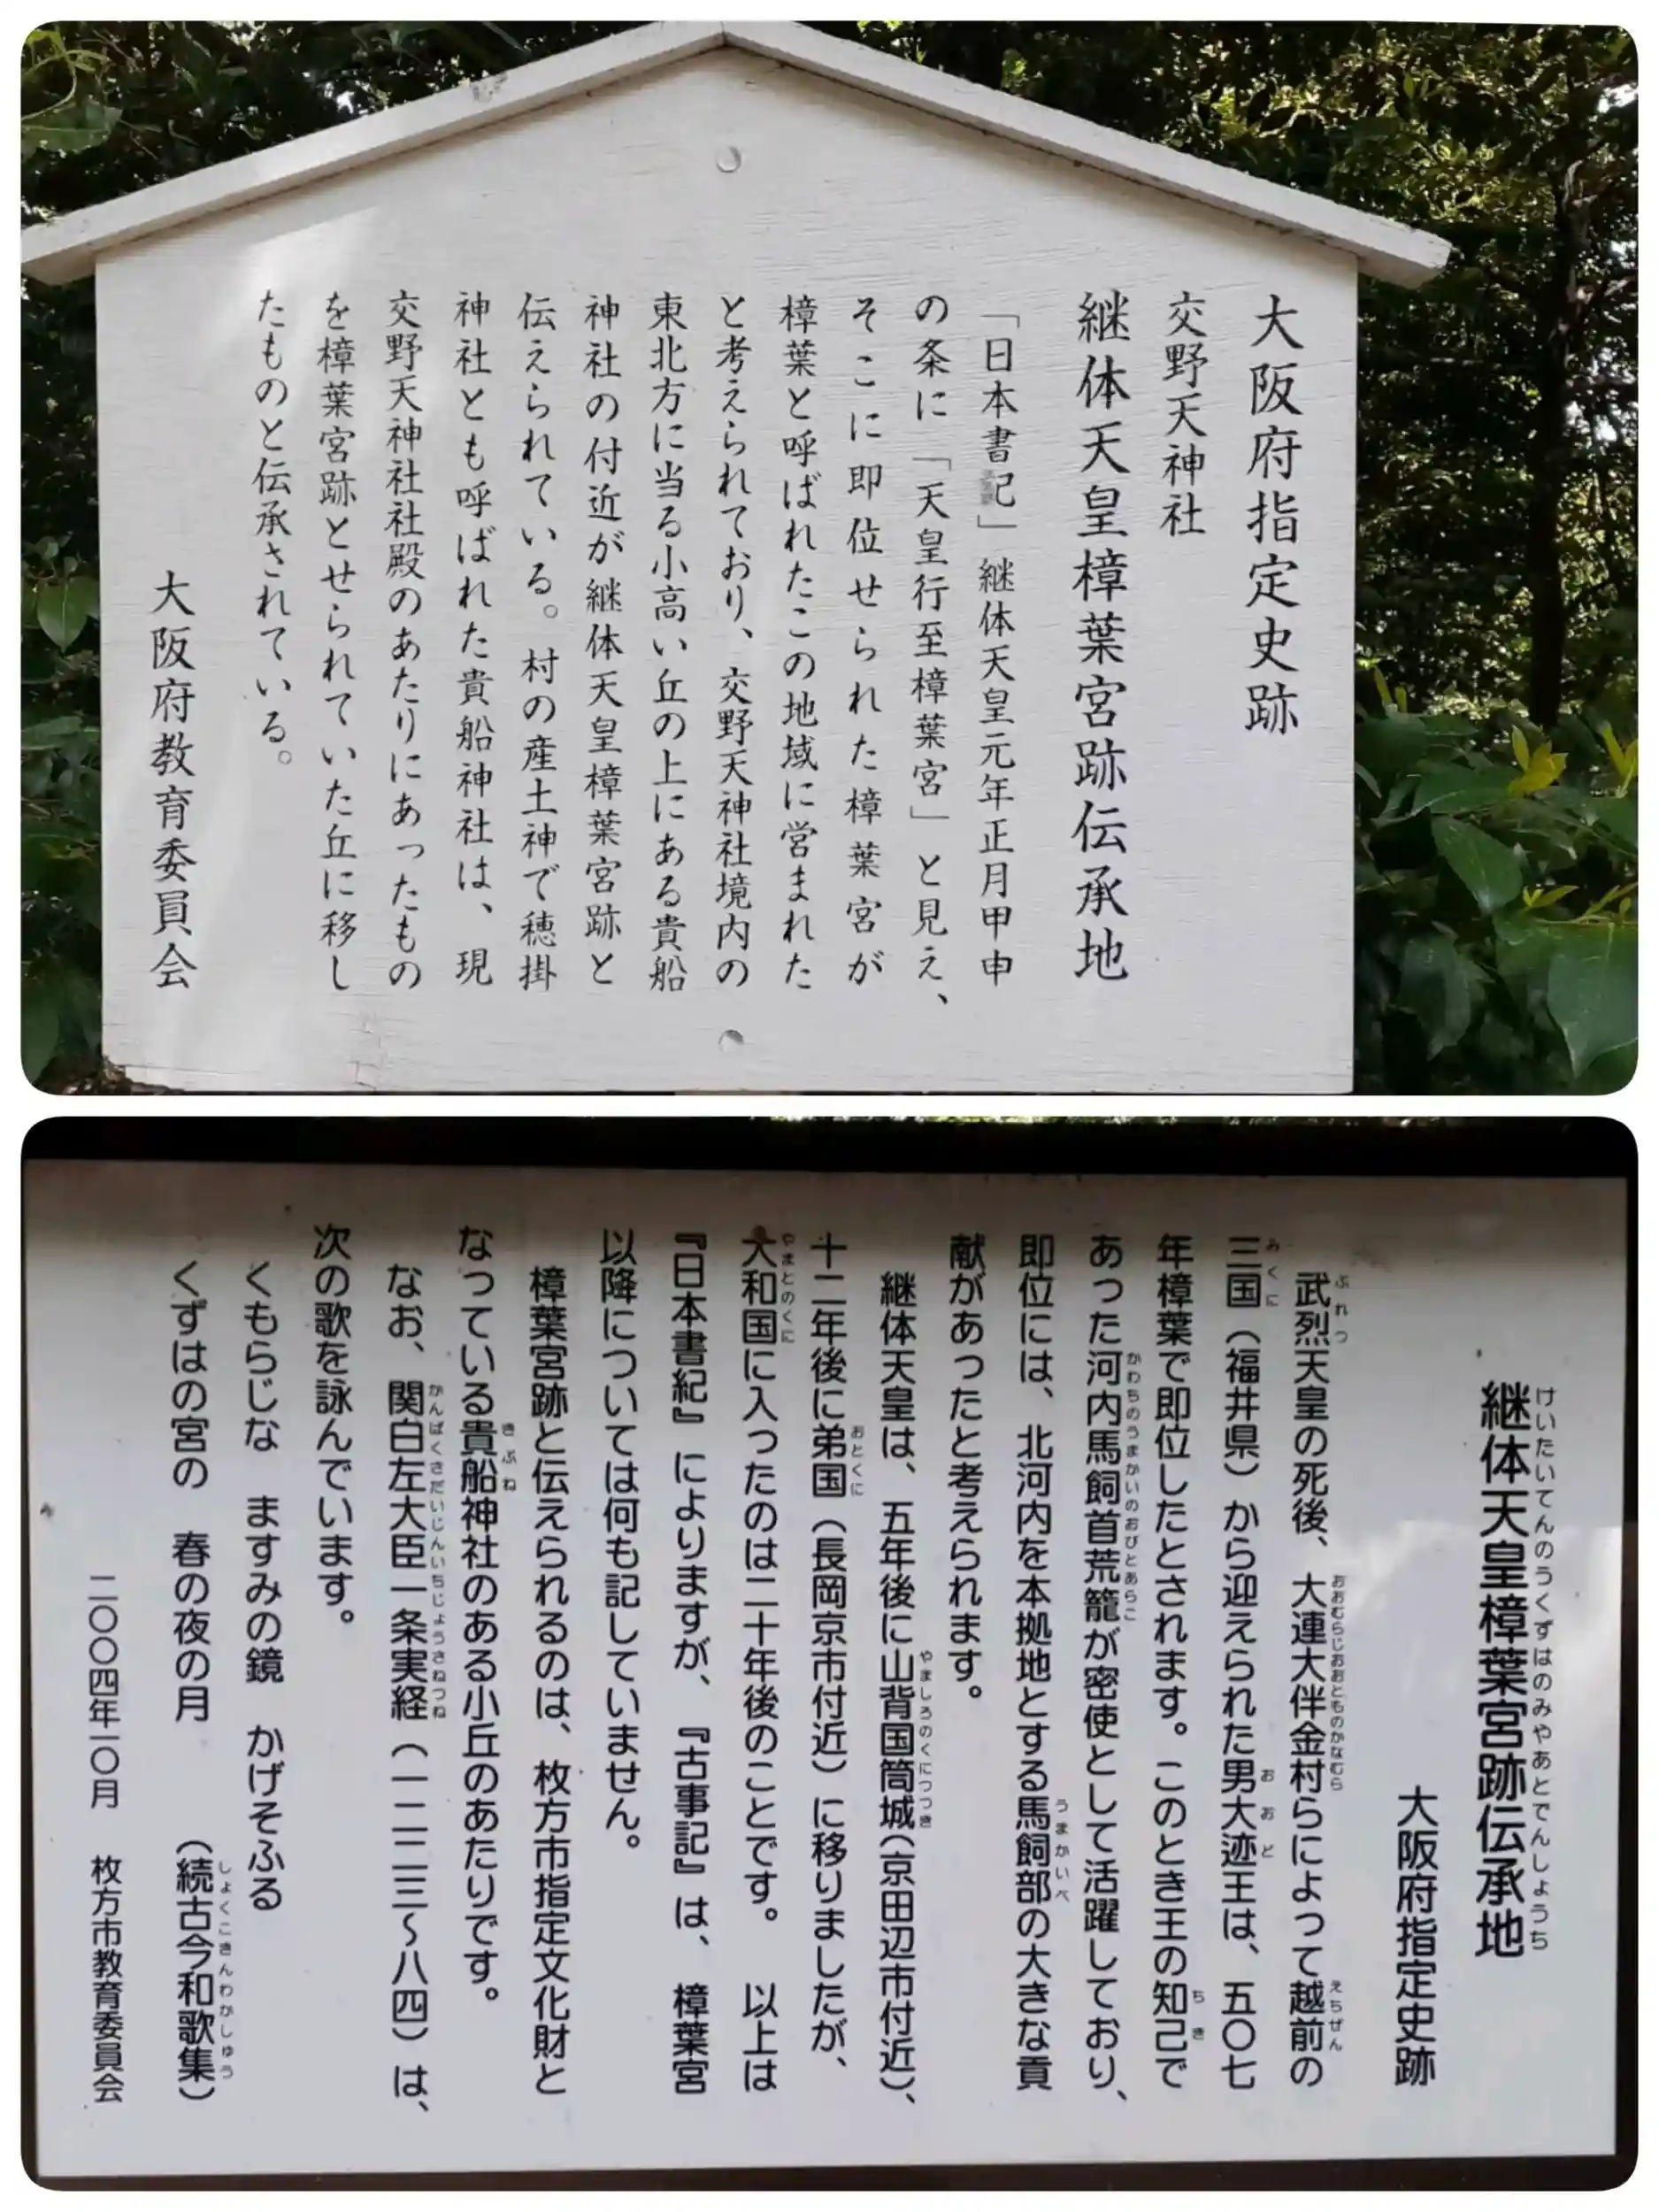 大阪府指定史跡
交野天神社
継体天皇樟葉宮跡伝承地
「日本書紀」継体天皇元年正月甲申
の条に「天皇行至樟葉宮」と見え、
そこに即位せられた樟葉宮が
樟葉と呼ばれたこの地域に営まれた
と考えられており、交野天神社境内の
東北方に当る小高い丘の上にある貴船
神社の付近が継体天皇樟葉宮跡と
伝えられている。村の産土神で穂掛
神社とも呼ばれた貴船神社は、現
交野天神社社殿のあたりにあったもの
を樟葉宮跡とせられていた丘に移し
たものと伝承されている。
大阪府教育委員会
けいたいてんのうくずはのみやあとでんしょうち
継体天皇樟葉宮跡伝承地
大阪府指定史跡
ぶれつ おおむらじおおとものかなむら えちぜん
武烈天皇の死後、大連大伴金村らによって越前の
みくに おおど
三国（福井県）から迎えられた男大迹王は、五〇七
ちき
年樟葉で即位したとされます。このとき王の知己で
かわちのうまかいのおびとあらこ
あった河内馬飼首荒籠が密使として活躍しており、
うまかいべ
即位には、北河内を本拠地とする馬飼部の大きな貢
献があったと考えられます。
やましろのくにつつき
継体天皇は、五年後に山背国筒城（京田辺市付近）、
おとくに
十二年後に弟国（長岡京市付近）に移りましたが、
やまとのくに
大和国に入ったのは二十年後のことです。 以上は
『日本書紀』によりますが、『古事記』は、樟葉宮
以降については何も記していません。
樟葉宮跡と伝えられるのは、枚方市指定文化財と
きぶね
なっている貴船神社のある小丘のあたりです。
かんぱくさだいじんいちじょうさねつね
なお、関白左大臣一条実経（一二二三～八四）は、
次の歌を詠んでいます。
くもらじな ますみの鏡 かげそふる
しょくこきんわかしゅう
くずはの宮の 春の夜の月 （続古今和歌集）
二〇〇四年一〇月 枚方市教育委員会